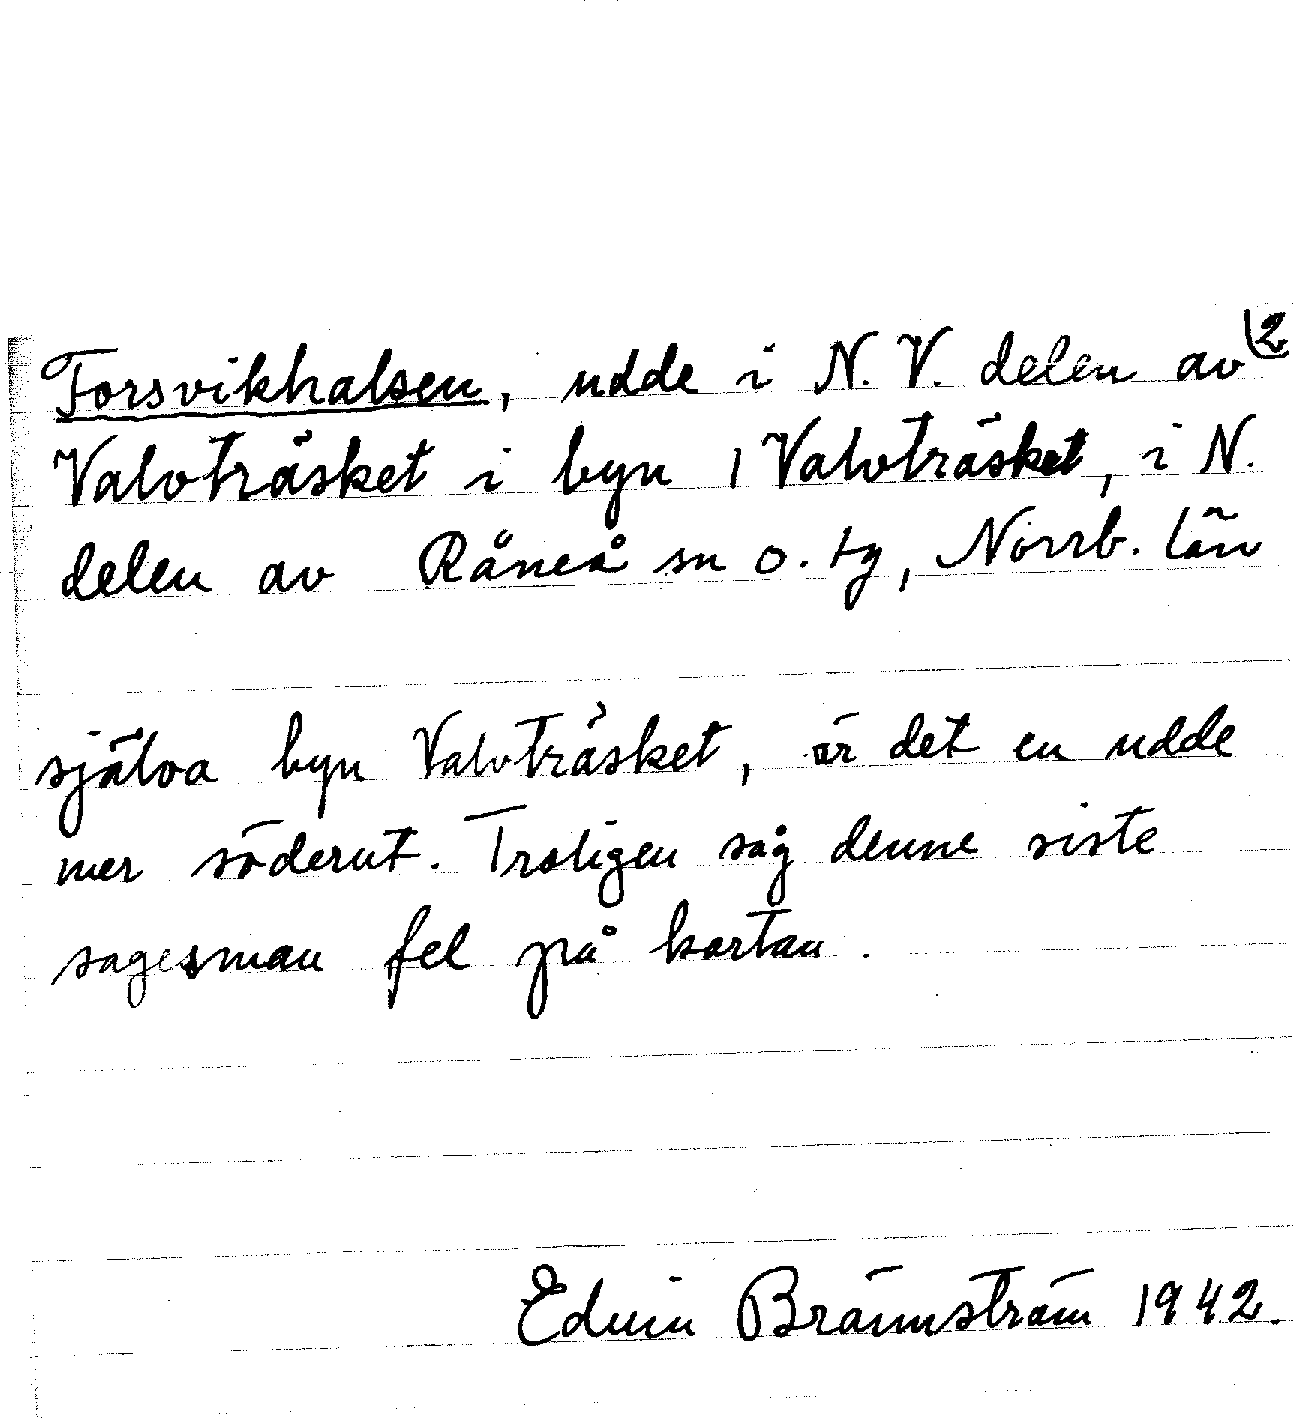 Forsvikhalsen, udde i N. V. delen av 2
Valvträsket i byn 1 Valvträsket, i N.
delen av Råneå sn o. tg, Norrb. län
själva byn Valvträsket, är det en udde
mer söderut. Troligen såg denne siste
sagesman fel på kartan.
Edvin Brännström 1942.